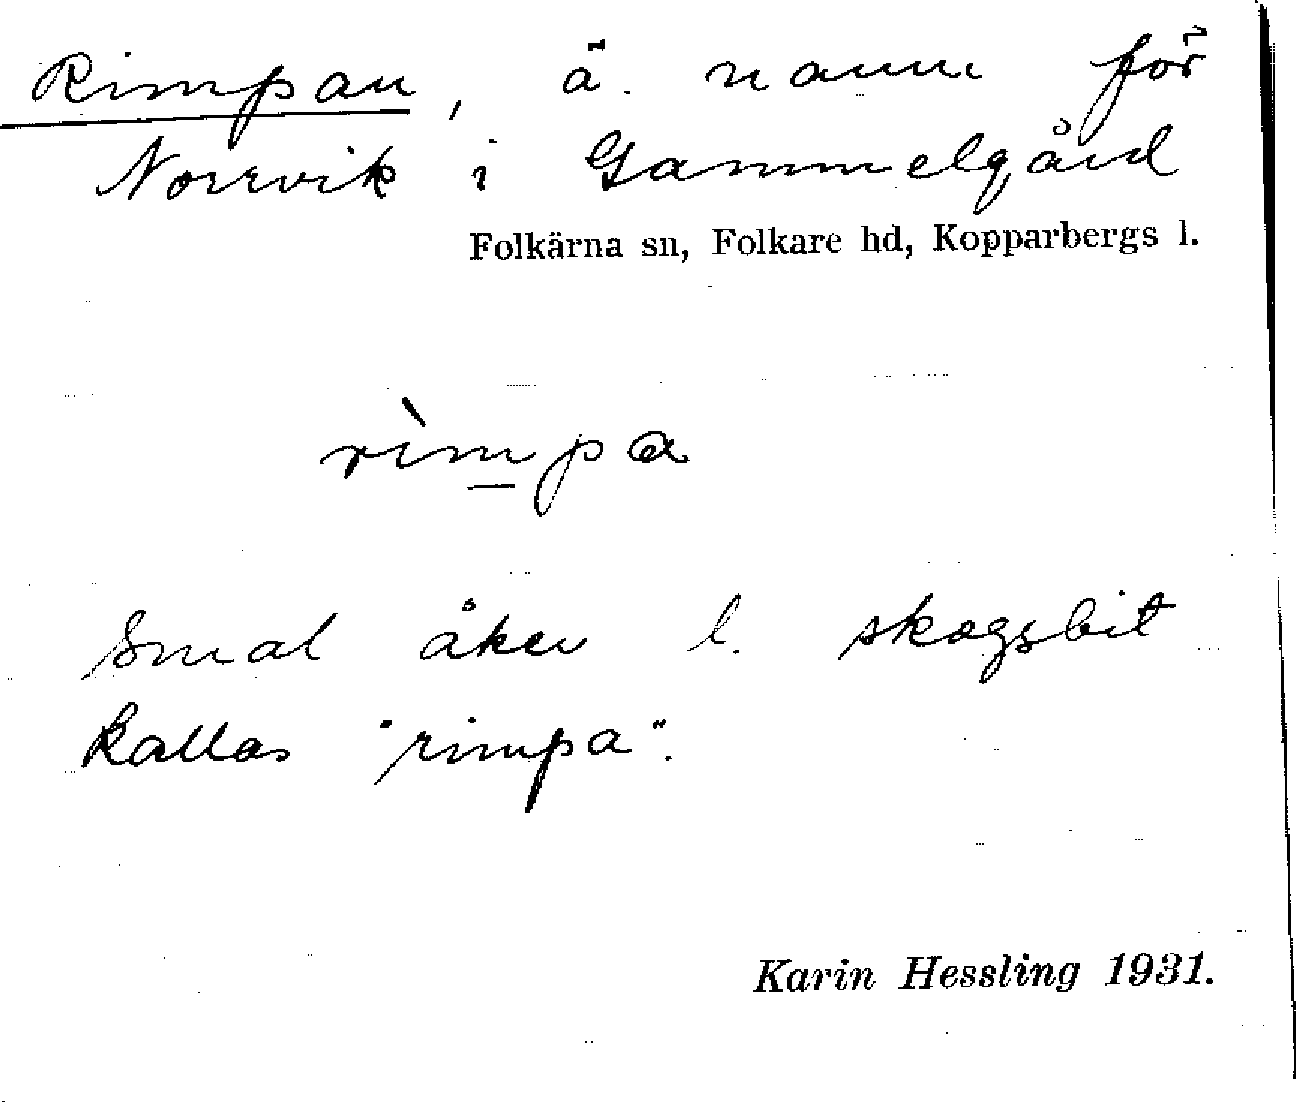 Rimpan, ä. namn för
Norrvik i Gammelgård
Folkärna sn, Folkare hd, Kopparbergs l.
rìmpa
Smal åker l. skogsbit
kallas "rimpa".
Karin Hessling 1931.